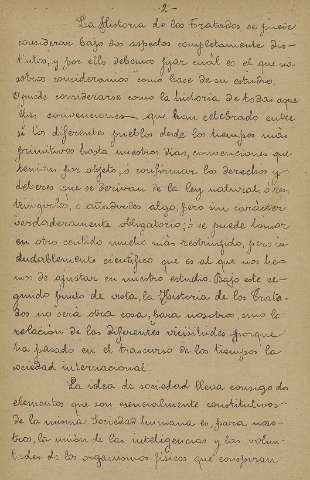 - 2 -
La Historia de los Tratados se puede
considerar bajo dos aspectos completamente dis-
tintos, y por ello debemos fijar cual es el que no-
sotros consideramos como base de su estudio.
O puede considerarse como la historia de todas aque-
llas convenciones que han celebrado entre
sí los diferentes pueblos desde los tiempos más
primitivos hasta nuestros dias, convenciones que
tenian por objeto, o confirmar los derechos y
deberes que se derivan de la ley natural, o res-
tringirlos, o añadirles algo, pero sin carácter
verdaderamente obligatorio; o se puede tomar
en otro sentido mucho más restringido, pero in-
dudablemente científico que es al que nos he-
mos de ajustar en nuestro estudio. Bajo este se-
gundo punto de vista, la Historia de los Trata-
dos no será otra cosa, para nosotros, sino la
relación de las diferentes vicisitudes porque
ha pasado en el trascurso de los tiempos la
sociedad internacional.
La idea de sociedad lleva consigo dos
elementos que son esencialmente constitutivos
de la misma. Sociedad humana es, para noso-
tros, la unión de las inteligencias y las volun-
tades de los organismos físicos que conspiran